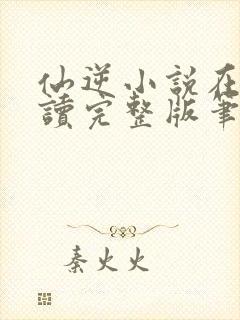 仙逆小說在
讀完整版筆
秦火火